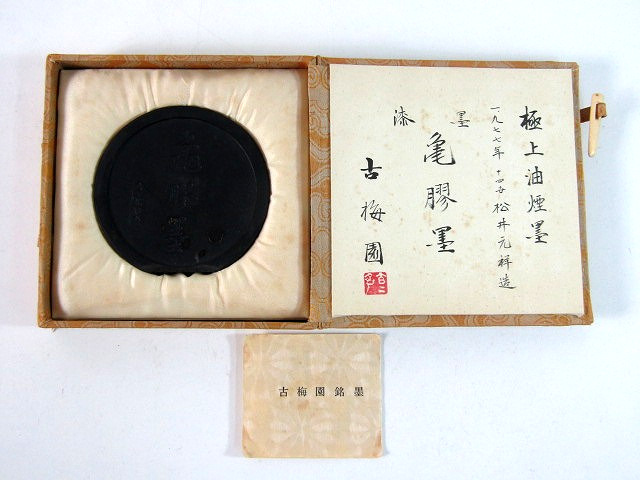 極上油煙墨
一九七七年 十四世 松井元祥造
漆墨
亀膠墨
古梅園
古梅園銘墨